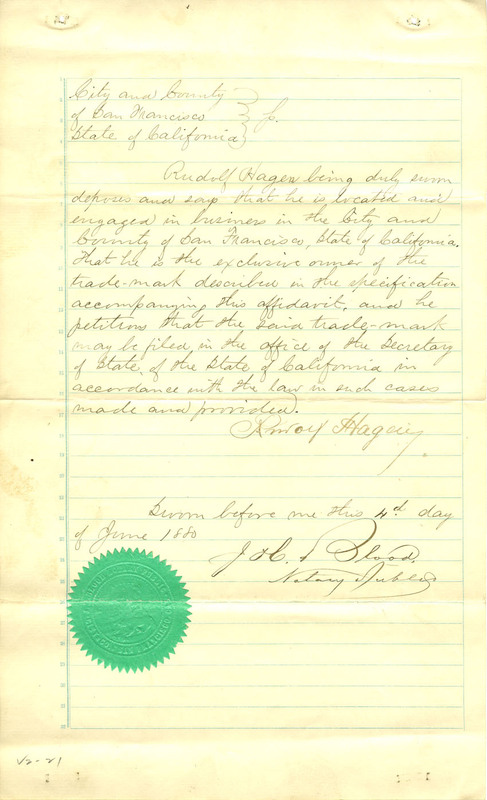 City and County
of San Francisco
State of California
Rudolf Hagen being duly sworn
deposes and says that he is located and
engaged in business in the City and
County of San Francisco, State of California.
that he is the exclusive owner of the
trade-mark described in the specification
accompanying this affidavit, and he
petitions that the said trade-mark
may be filed in the office of the Secretary
of State, of the State of California in
accordance with the law in such cases
made and provided.
Rudolf Hagen
Sworn before me this 4d day
of June 1880
Blood.
Notary Public
V2-21